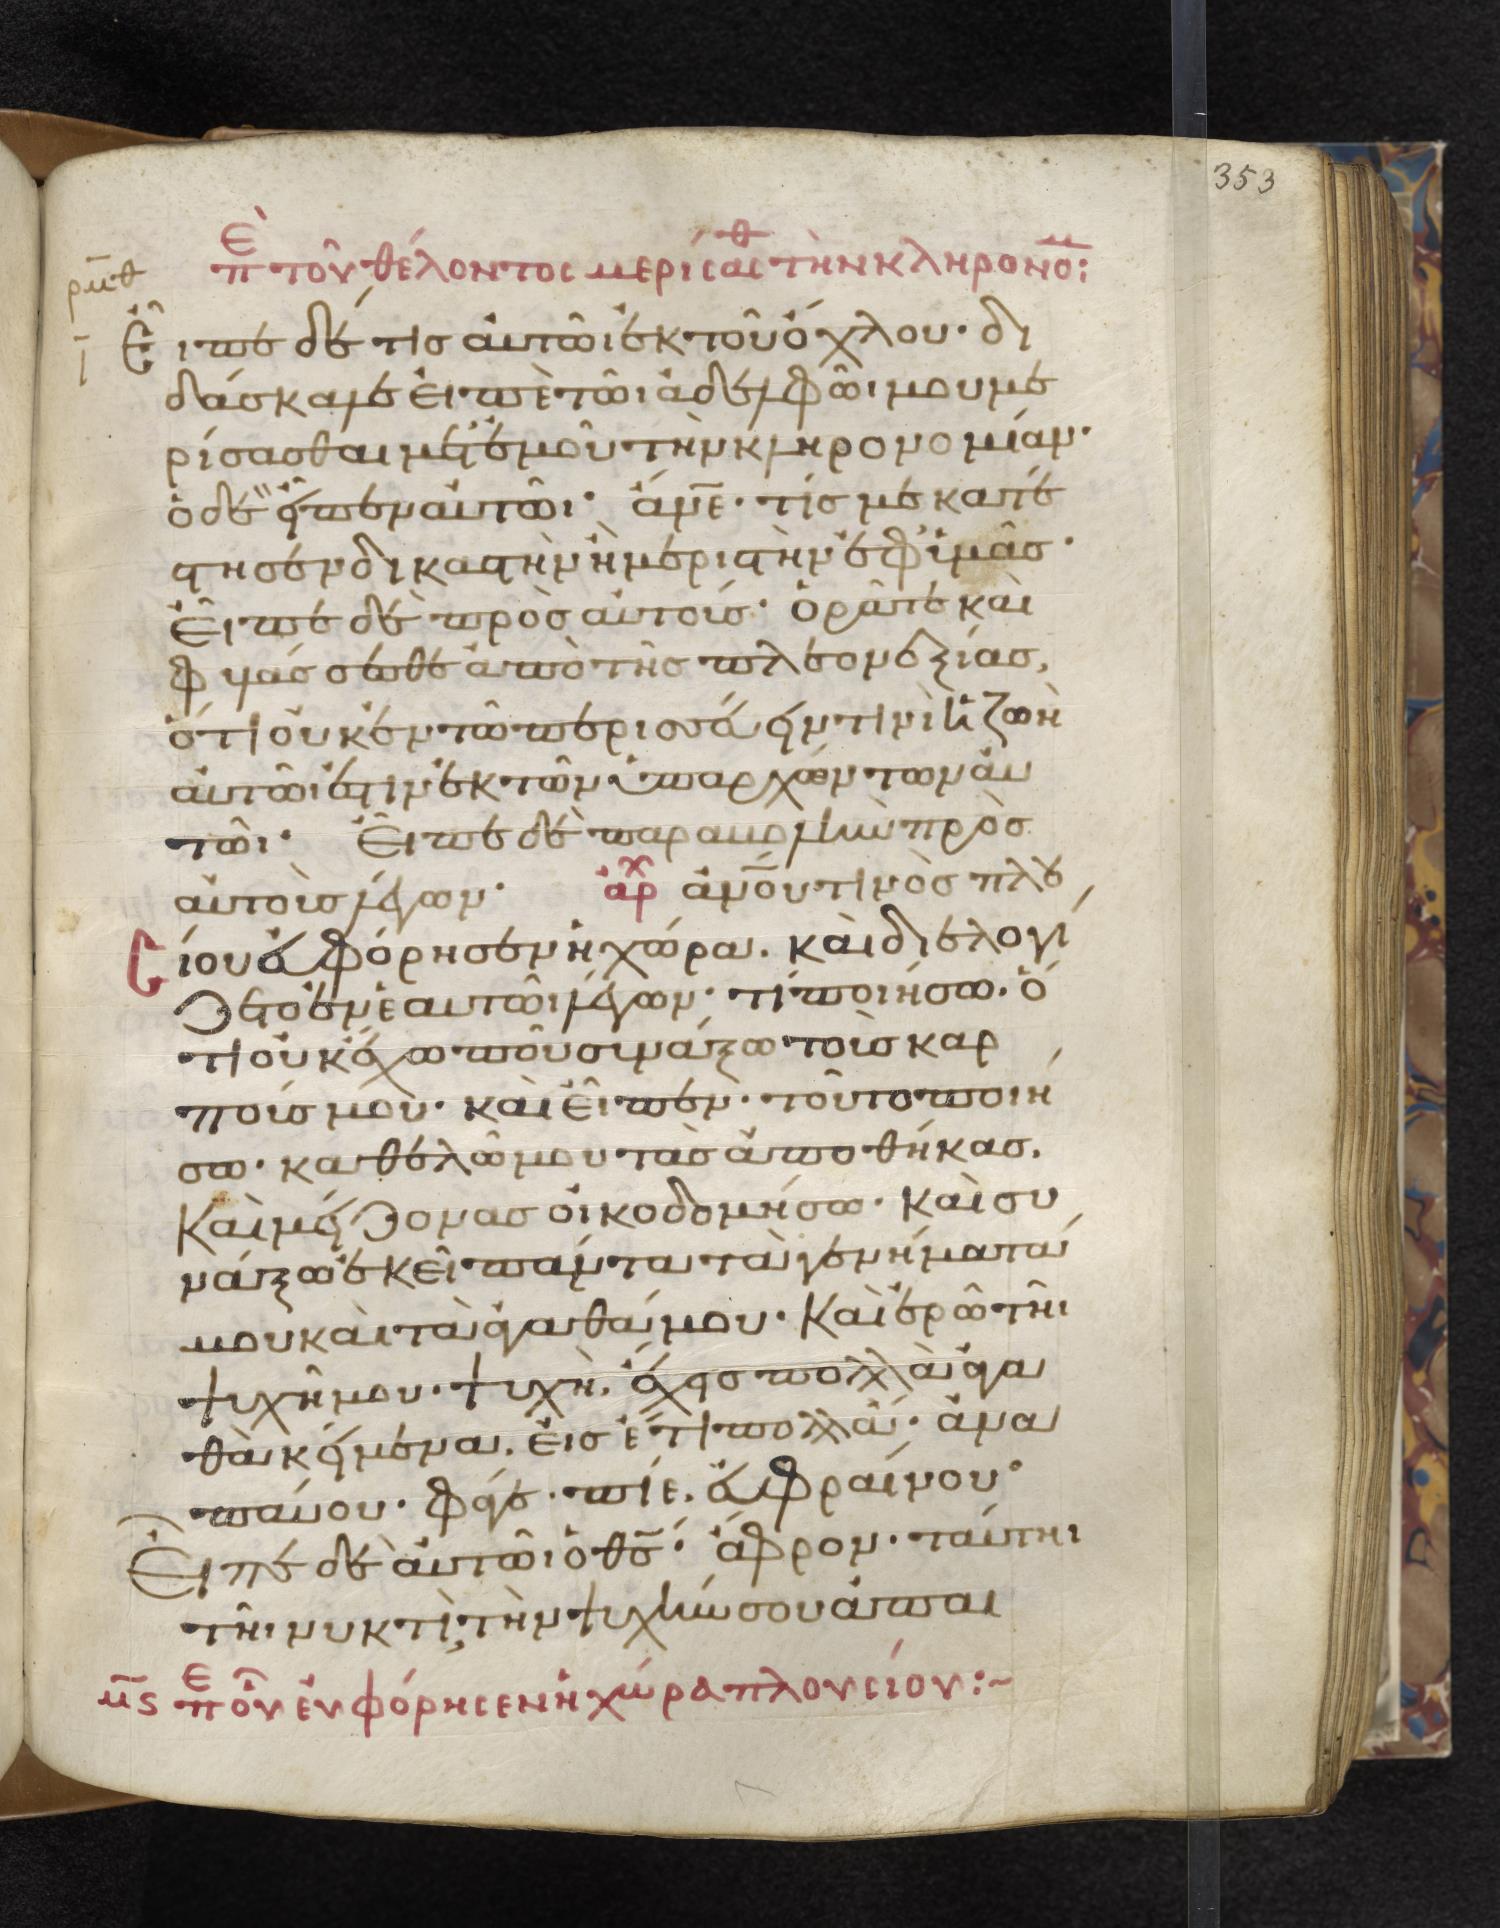 353
Ἐπ τοῦ θέλοντος μερίσαθ τὴν κληρονο̅μ:
ρμθ
ι Εἶπε δέ τις αὐτῶι ἐκ τοῦ ὄχλου· δι
δάσκαλε εἰπὲ τῶι ἀδελφῶι μου με
ρίσασθαι μετ ἐμοῦ τὴν κληρονομίαν·
ὁ δὲ εἶπεν αὐτῶι· ἄν̅ε· τίς με κατέ
στησεν δικαστὴν ἢ μεριστὴν ἐφ ὑμᾶς·
Εἶπε δὲ πρὸς αὐτούς· ὁρᾶτε καὶ
φυλάσσεσθε ἀπὸ τῆς πλεονεξίας,
ὅτι οὐκ ἐν τῶ περισσεύειν τινὶ ἡ ζωὴ
αὐτῶι ἐστιν ἐκ τῶν ὑπαρχόντων αὐ
τῶι· Εἶπε δὲ παραβολὴν πρὸς
αὐτοὺς λέγων· ἀρχ ἀν̅ου τινὸς πλου
σίου εὐφόρησεν ἡ χώρα. καὶ διελογί
ζετο ἐν ἑαυτῶι λέγων· τί ποιήσω. ὅ
τι οὐκ ἔχω ποῦ συνάξω τοὺς καρ
πούς μου· καὶ εἶπεν· τοῦτο ποιή
σω· καθελῶ μου τὰς ἀποθήκας.
Καὶ μείζονας οἰκοδομήσω· καὶ συ
νάξω ἐκεῖ πάντα τὰ γενήματά
μου καὶ τὰ ἀγαθά μου· Καὶ ἐρῶ τῆι
ψυχῆ μου· ψυχὴ. ἔχεις πολλὰ ἀγα
θὰ κείμενα. εἰς ἔτη πολλά· ἀνα
παύου· φάγε· πίε. εὐφραίνου·
Εἶπε δὲ αὐτῶι ὁ θ̅ς· ἄφρον· ταύτηι
τῆι νυκτὶ, τὴν ψυχήν σου ἀπαι
μ̅ς Επ οὗ εὐφόρησεν ἡ χώρα πλουσίου:~